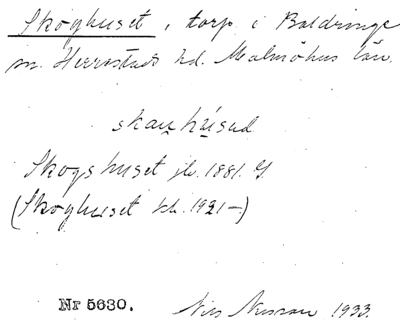 Skoghuset, torp i Baldringe
sn. Herrestads hd. Malmöhus län.
skauhúsud
Skogshuset jb. 1881. G
(Skoghuset kb. 1921–)
Nr 5630. Nils 1933.